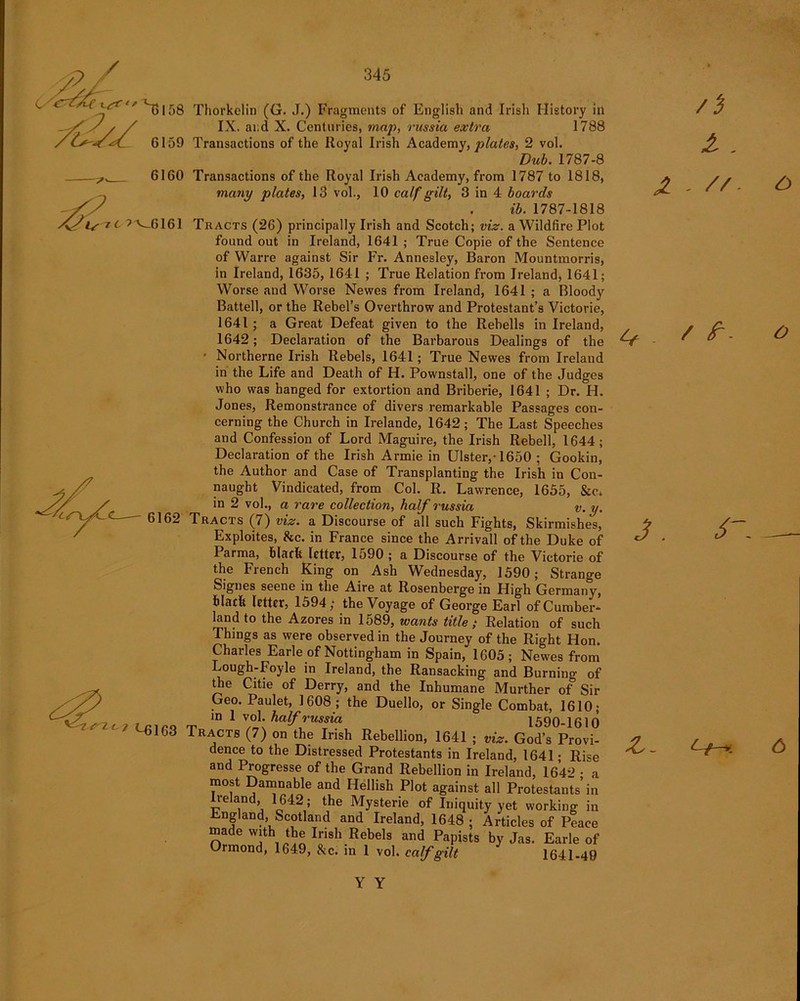 345
6158 Thorkelin (G. J.) Fragments of English and Irish History in
IX. and X. Centuries, map, russia extra 1788
6159 Transactions of the Royal Irish Academy, plates, 2 vol.
Dub. 1787-8
6160 Transactions of the Royal Irish Academy, from 1787 to 1818,
many plates, 13 vol., 10 calf gilt, 3 in 4 boards
ib. 1787-1818
6161 Tracts (26) principally Irish and Scotch; viz. a Wildfire Plot
found out in Ireland, 1641 ; True Copie of the Sentence
of Warre against Sir Fr. Annesley, Baron Mountmorris,
in Ireland, 1635, 1641 ; True Relation from Ireland, 1641;
Worse and Worse Newes from Ireland, 1641 ; a Bloody
Battell, or the Rebel's Overthrow and Protestant's Victorie,
1641 ; a Great Defeat given to the Rebells in Ireland,
1642 ; Declaration of the Barbarous Dealings of the
Northerne Irish Rebels, 1641 ; True Newes from Ireland
in the Life and Death of H. Pownstall, one of the Judges
who was hanged for extortion and Briberie, 1641 ; Dr. H.
Jones, Remonstrance of divers remarkable Passages con-
cerning the Church in Irelande, 1642 ; The Last Speeches
and Confession of Lord Maguire, the Irish Rebell, 1644 ;
Declaration of the Irish Armie in Ulster, 1650 ; Gookin,
the Author and Case of Transplanting the Irish in Con-
naught Vindicated, from Col. R. Lawrence, 1655, &c.
in 2 vol., a rare collection, half russia v. y.
6162 Tracts (7) viz. a Discourse of all such Fights, Skirmishes,
Exploites, &c. in France since the Arrivall of the Duke of
Parma, black letter, 1590 ; a Discourse of the Victorie of
the French King on Ash Wednesday, 1590 ; Strange
Signes seene in the Aire at Rosenberge in High Germany,
black letter, 1594 ; the Voyage of George Earl of Cumber-
land to the Azores in 1589, wants title ; Relation of such
Things as were observed in the Journey of the Right Hon.
Charles Earle of Nottingham in Spain, 1605 ; Newes from
Lough-Foyle in Ireland, the Ransacking and Burning of
the Citie of Derry, and the Inhumane Murther of Sir
Geo. Paulet, 1608 ; the Duello, or Single Combat, 1610;
in 1 vol. half russia 1590-1610
6163 Tracts (7) on the Irish Rebellion, 1641 ; viz. God's Provi-
dence to the Distressed Protestants in Ireland, 1641 ; Rise
and Progresse of the Grand Rebellion in Ireland, 1642 ; a
most Damnable and Hellish Plot against all Protestants in
Ireland, 1642 ; the Mysterie of Iniquity yet working in
England, Scotland and Ireland, 1648 ; Articles of Peace
made with the Irish Rebels and Papists by Jas. Earle of
Ormond, 1649, &c. in 1 vol. calf gilt 1641-49
Y Y
13
2 .
2 - 11 - 0
4 - 18 - 0
3 . 5 -
2 - 4 - 0